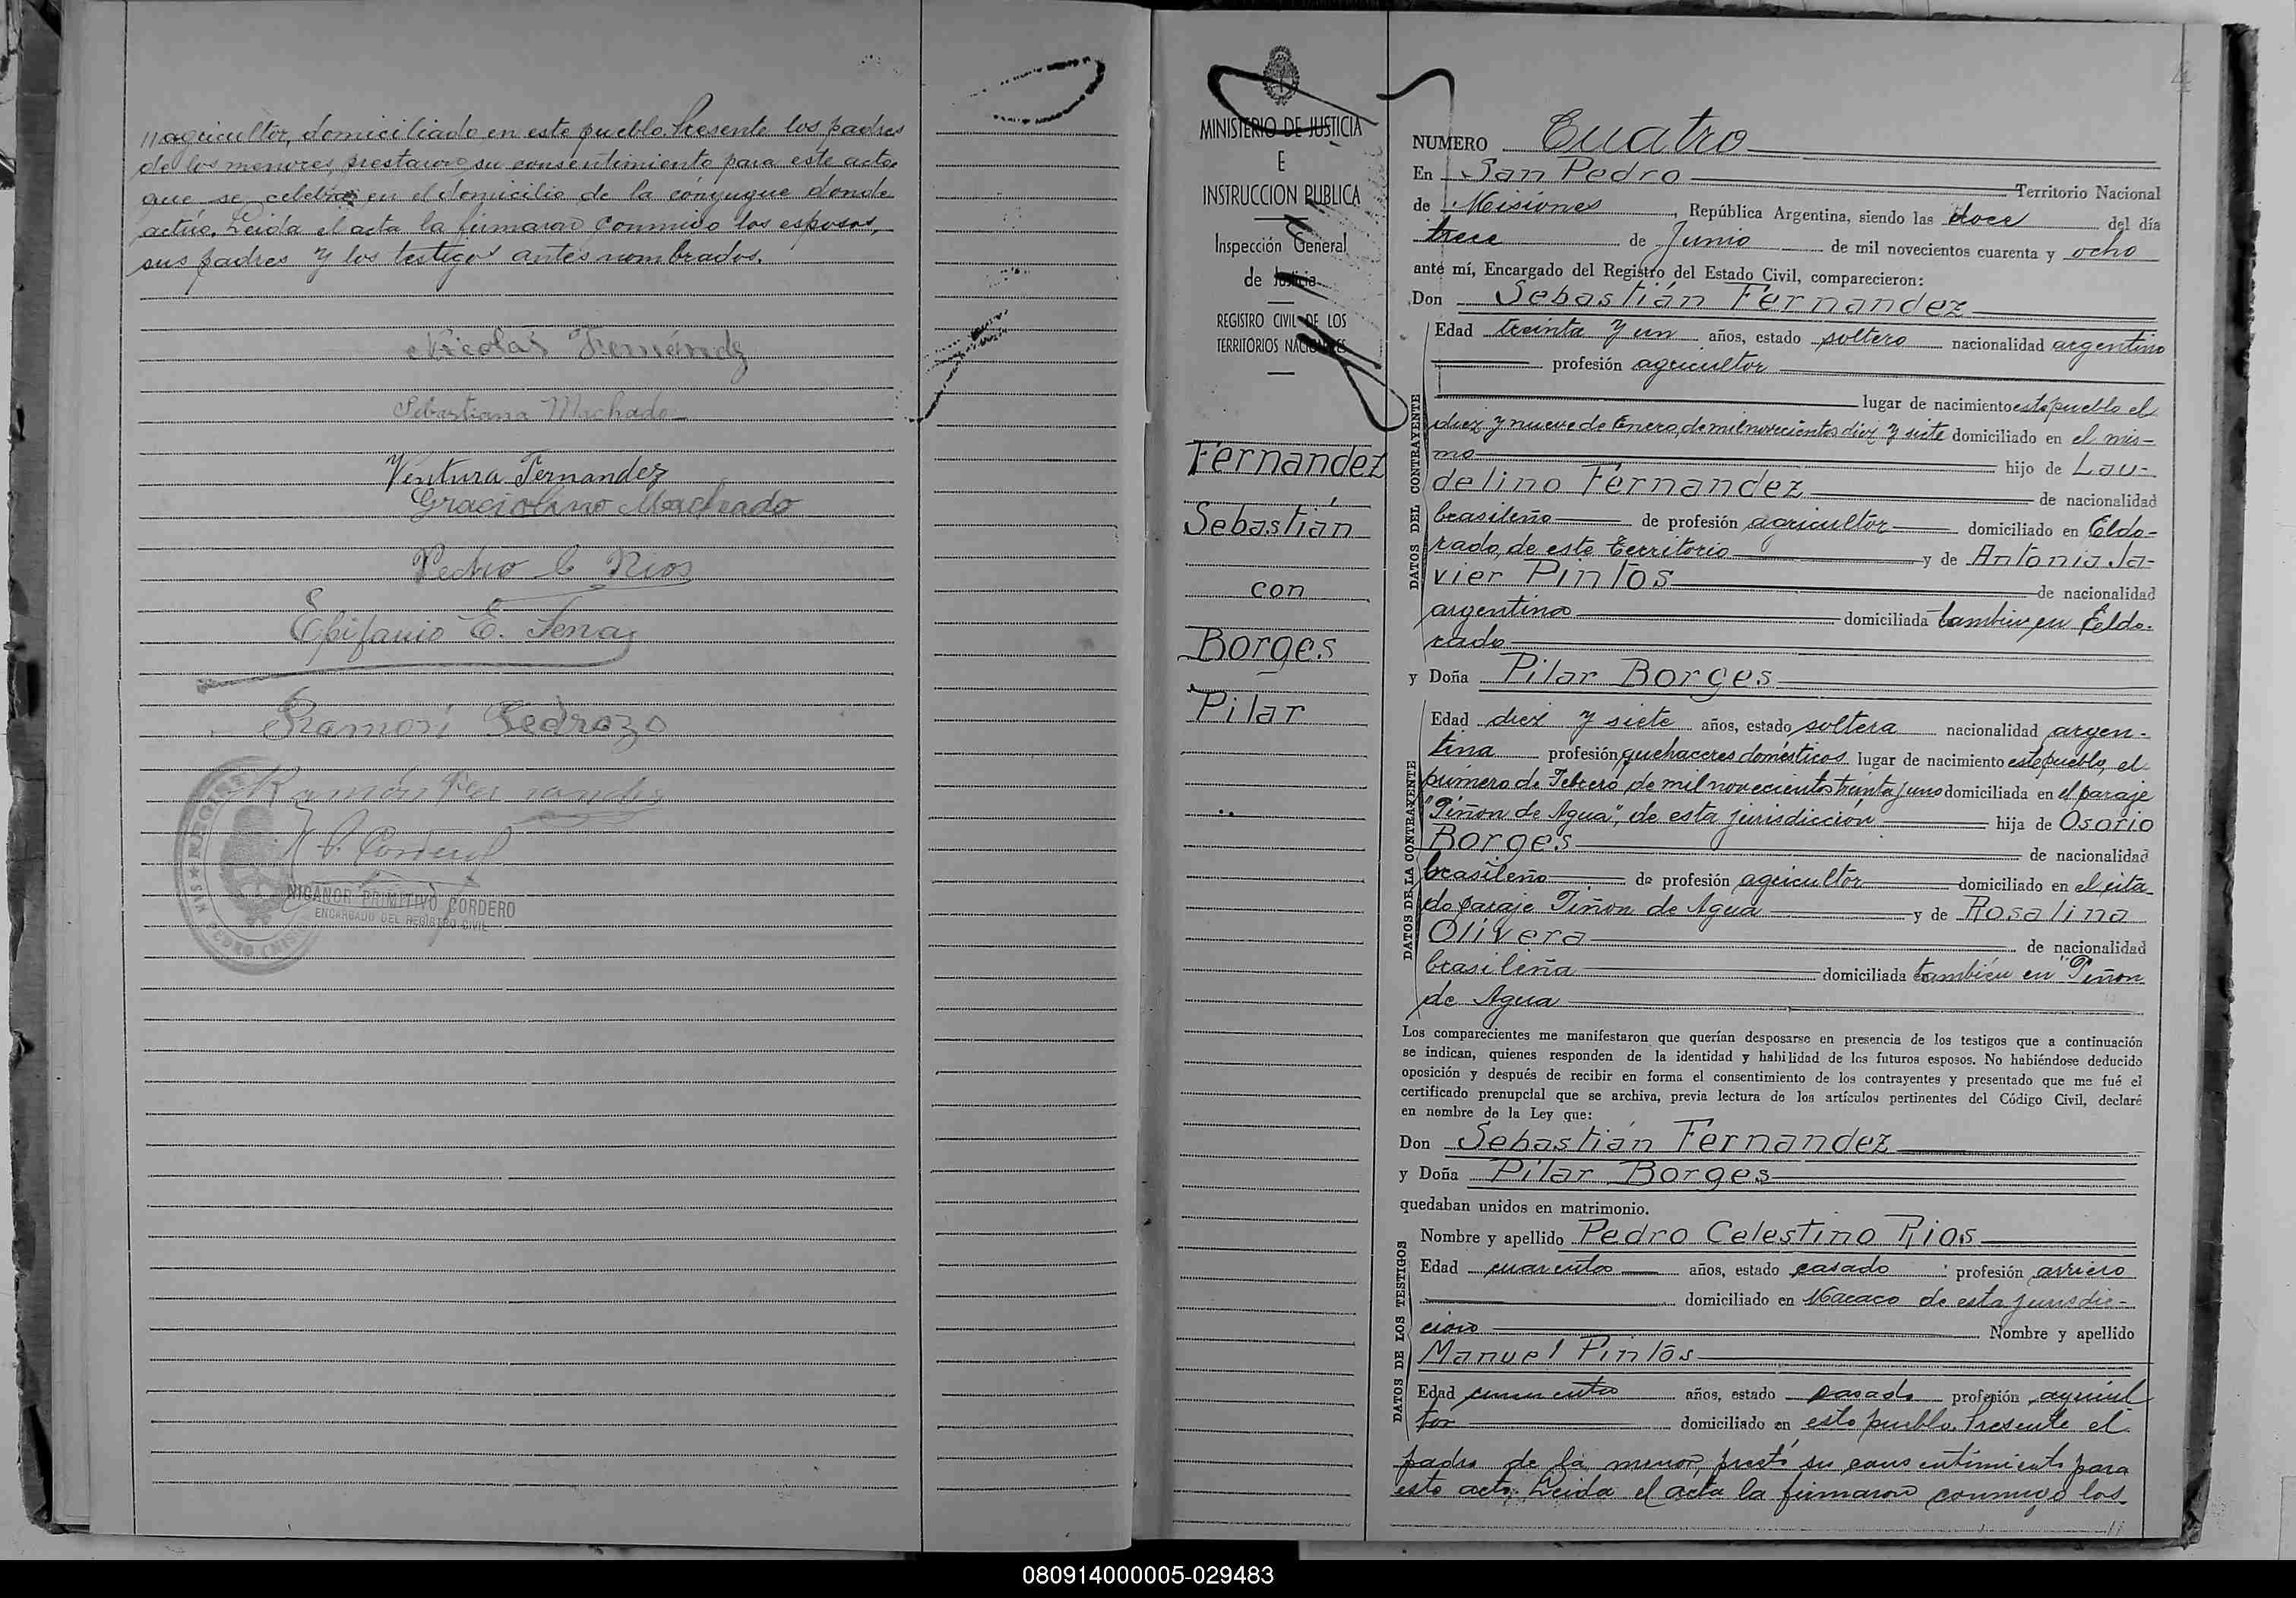 // agricultor, domiciliado en este pueblo. Presente los padres
de los menores, prestaron su consentimiento para este acto
que se celebra en el domicilio de la cónyugue donde
actúo. Leida el acta la firmaron conmigo los esposos,
sus padres y los testigos antes nombrados.
Nicolas Fernández
Sebastiana Machado
Ventura Fernandez
Graciolino Machado
Pedro C Rios
Epifanio E. Sena
Ramon Pedrozo
Ramón Fernandez
P. Cordero
NICANOR PRIMITIVO CORDERO
ENCARGADO DEL REGISTRO CIVIL
MINISTERIO DE JUSTICIA
E
INSTRUCCION PUBLICA
Inspección General
de Justicia
REGISTRO CIVIL DE LOS
TERRITORIOS NACIONALES
Fernandez
Sebastián
con
Borges
Pilar
4
NUMERO Cuatro
En San Pedro Territorio Nacional
de Misiones, República Argentina, siendo las doce del día
trece de Junio de mil novecientos cuarenta y ocho
ante mí, Encargado del Registro del Estado Civil, comparecieron:
Don Sebastián Fernandez
DATOS DEL CONTRAYENTE
Edad treinta y un años, estado soltero nacionalidad argentino
profesión agricultor
lugar de nacimiento este pueblo el
diez y nueve de Enero, de mil novecientos diez y siete domiciliado en el mis-
mo hijo de Lau-
delino Fernandez de nacionalidad
brasileño de profesión agricultor domiciliado en Eldo-
rado, de este territorio y de Antonia Ja-
vier Pintos de nacionalidad
argentina domiciliada tambien en Eldo-
rado
y Doña Pilar Borges
DATOS DE LA CONTRAYENTE
Edad diez y siete años, estado soltera nacionalidad argen-
tina profesión quehaceres domésticos lugar de nacimiento este pueblo, el
primero de Febrero de mil novecientos treinta y uno domiciliada en el paraje
"Piñon de Agua", de esta jurisdicción hija de Osorio
Borges de nacionalidad
brasileño de profesión agricultor domiciliado en el cita-
do paraje Piñon de Agua y de Rosalina
Olivera de nacionalidad
brasileña domiciliada también en Piñon
de Agua
Los comparecientes me manifestaron que querían desposarse en presencia de los testigos que a continuación
se indican, quienes responden de la identidad y habilidad de los futuros esposos. No habiéndose deducido
oposición y después de recibir en forma el consentimiento de los contrayentes y presentado que me fué el
certificado prenupcial que se archiva, previa lectura de los artículos pertinentes del Código Civil, declaré
en nombre de la Ley que:
Don Sebastián Fernandez
y Doña Pilar Borges
quedaban unidos en matrimonio.
DATOS DE LOS TESTIGOS
Nombre y apellido Pedro Celestino Rios
Edad cuarenta años, estado casado profesión arriero
domiciliado en Macaco de esta jurisdic-
cion Nombre y apellido
Manuel Pintos
Edad años, estado casado profesión agricul
tor domiciliado en este pueblo. Presente el
padre de la menor, prestó su consentimiento para
este acto. Leida el acta la firmaron conmigo los
//
080914000005-029483